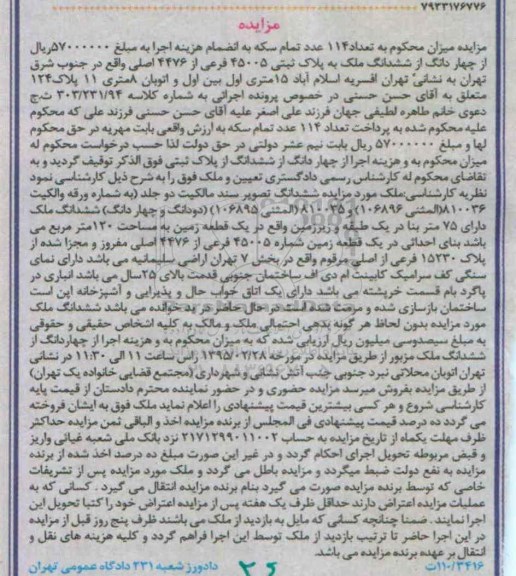 ۷۹۲۳۱۷۶۷۷۶
مزایده
مزایده میزان محکوم به تعداد۱۱۴ عدد تمام سکه به انضمام هزینه اجرا به مبلغ ۵۷۰۰۰۰۰۰ریال
از چهار دانگ از ششدانگ ملک به پلاک ثبتی ۴۵۰۰۵ فرعی از ۴۴۷۶ اصلی واقع در جنوب شرق
تهران به نشانی تهران افسریه اسلام آباد ۱۵متری اول بین اول و اتوبان ۸متری ۱۱ پلاک۱۲۴
متعلق به آقای حسن حسنی در خصوص پرونده اجرائی به شماره کلاسه ۳۰۳/۲۳۱/۹۴ ت.ج
دعوی خانم طاهره لطیفی جهان فرزند علی اصغر علیه آقای حسن حسنی فرزند علی که محکوم
علیه محکوم شده به پرداخت تعداد ۱۱۴ عدد تمام سکه به ارزش واقعی بابت مهریه در حق محکوم
لها و مبلغ ۵۷۰۰۰۰۰۰ ریال بابت نیم عشر دولتی در حق دولت لذا حسب درخواست محکوم له
میزان محکوم به و هزینه اجرا از چهار دانگ از ششدانگ از پلاک ثبتی فوق الذکر توقیف گردید و به
تقاضای محکوم له کارشناس رسمی دادگستری تعیین و ملک فوق را به شرح ذیل کارشناسی نمود
نظریه کارشناسی:ملک مورد مزایده ششدانگ تصویر سند مالکیت دو جلد (به شماره ورقه والکیت
۸۱۰۰۳۶(المثنی ۱۰۶۸۹۶)و ۸۱۰۰۳۵ (المثنی ۱۰۶۸۹۵) (دودانگ و چهار دانگ) ششدانگ ملک
دارای ۷۵ متر بنا در یک طبقه و زیرزمین واقع در یک قطعه زمین به مساحت ۱۲۰متر مربع می
باشد بنای احداثی در یک قطعه زمین شماره ۴۵۰۰۵ فرعی از ۴۴۷۶ اصلی مفروز و مجزا شده از
پلاک ۱۵۲۳۰ فرعی از اصلی مرقوم واقع در بخش ۷ تهران اراضی سلیمانیه می باشد دارای نمای
سنگی کف سرامیک کابینت ام دی اف ساختمان جنوبی قدمت بالای ۲۵سال می باشد انباری در
پاگرد بام قسمت خرپشته می باشد دارای یک اتاق خواب حال و پذیرایی و آشپزخانه این است
ساختمان بازسازی شده و مرمت شده است در حال حاضر در ید خوانده می باشد ششدانگ ملک
مورد مزایده بدون لحاظ هر گونه بدهی احتمالی ملک و مالک به کلیه اشخاص حقیقی و حقوقی
به مبلغ سیصدوسی میلیون ریال ارزیابی شده که به میزان محکوم به و هزینه اجرا از چهاردانگ از
ششدانگ ملک مزبور از طریق مزایده در مورخه ۱۳۹۵/۰۲/۲۸ راس ساعت ۱۱ الی ۱۱:۳۰ در نشانی
تهران اتوبان محلاتی نبرد جنوبی جنب آتش نشانی و شهرداری (مجتمع قضایی خانواده یک تهران)
از طریق مزایده بفروش میرسد مزایده حضوری و در حضور نماینده محترم دادستان از قیمت پایه
کارشناسی شروع و هر کسی بیشترین قیمت پیشنهادی را اعلام نماید ملک فوق به ایشان فروخته
می گردد ده درصد قیمت پیشنهادی فی المجلس از برنده مزایده اخذ و الباقی ثمن مزایده حداکثر
ظرف مهلت یکماه از تاریخ مزایده به حساب ۲۱۷۱۲۹۹۰۱۱۰۰۲ نزد بانک ملی شعبه غیاثی واریز
و قبض مربوطه تحویل اجرای احکام گردد و در غیر این صورت مبلغ ده درصد اخذ شده از برنده
مزایده به نفع دولت ضبط میگردد و مزایده باطل می گردد و ملک مورد مزایده پس از تشریفات
خاصی که توسط برنده مزایده صورت می گیرد بنام برنده مزایده انتقال می گیرد . کسانی که به
عملیات مزایده اعتراض دارند حداقل ظرف یک هفته پس از مزایده اعتراض خود را کتبا تحویل این
اجرا نمایند . ضمنا چنانچه کسانی که مایل به بازدید از ملک می باشند ظرف پنج روز قبل از مزایده
در این اجرا حاضر تا ترتیب بازدید از ملک توسط این اجرا فراهم گردد و کلیه هزینه های نقل و
انتقال بر عهده برنده مزایده می باشد.
۱۱۰/۳۴۱۶ت دادورز شعبه ۲۳۱ دادگاه عمومی تهران
۲۶